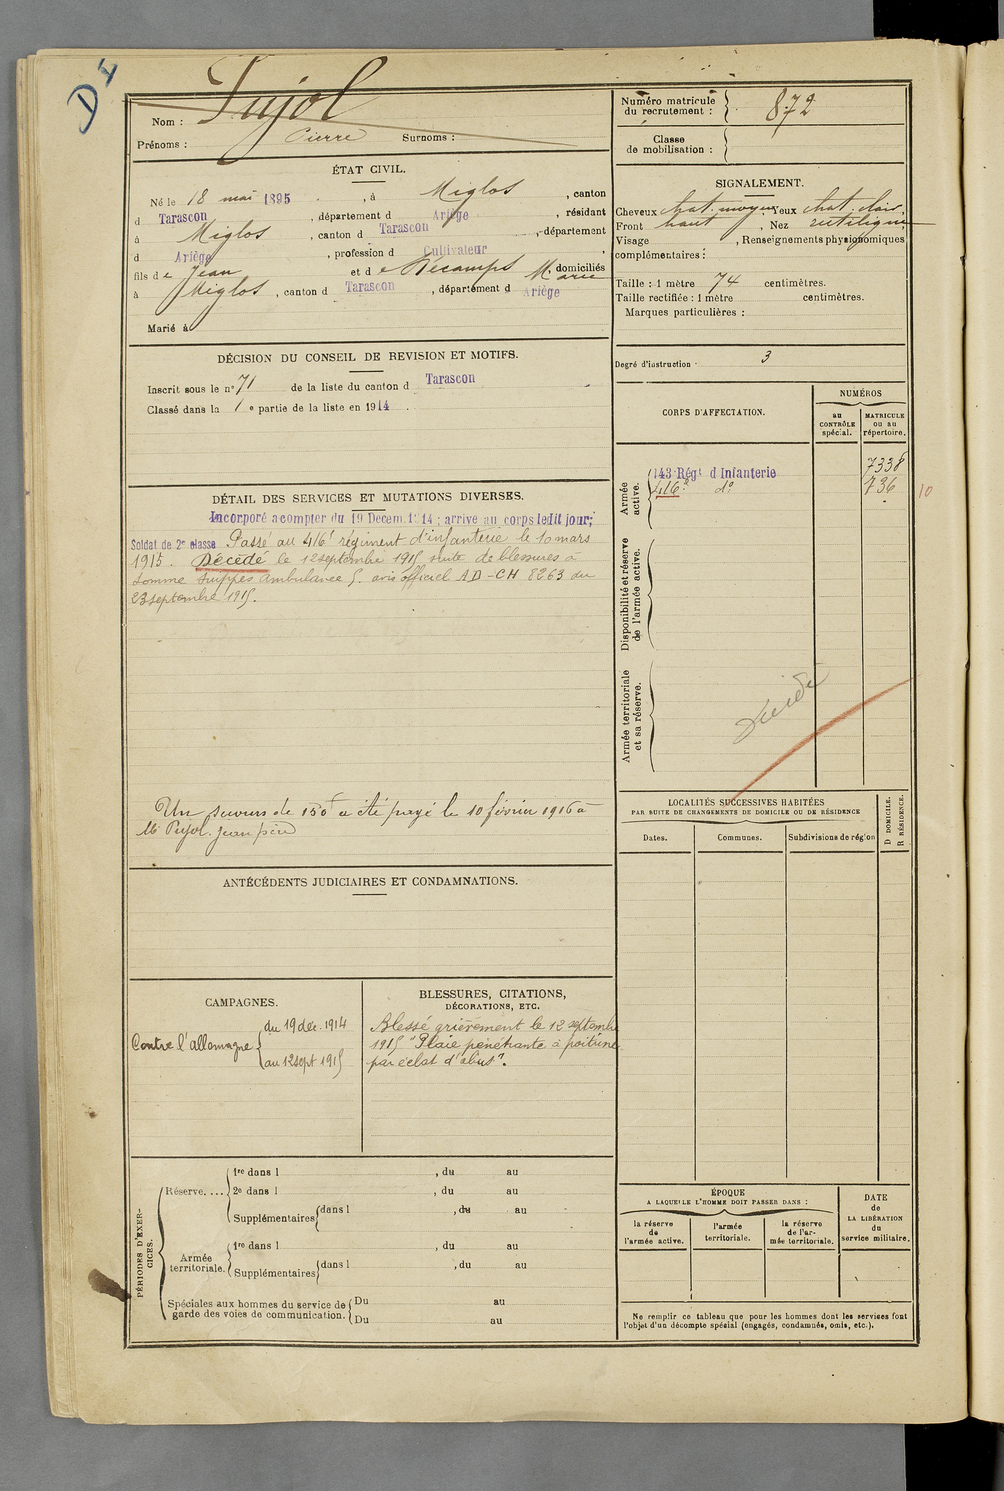 D
Pujol
Nom :
Prénoms : Pierre Surnoms :
ÉTAT CIVIL.
Né le 18 mai 1895, à Miglos, canton
d Tarascon, département d Ariège, résidant
à Miglos, canton d Tarascon, département
d Ariège, profession d Cultivateur,
fils de Jean et de Décamps Marie, domiciliés
à Miglos, canton d Tarascon, département d Ariège
Marié à
DÉCISION DU CONSEIL DE REVISION ET MOTIFS.
Inscrit sous le n° 71 de la liste du canton d Tarascon
Classé dans la 1e partie de la liste en 1914.
DÉTAIL DES SERVICES ET MUTATIONS DIVERSES.
Incorporé a compter du 19 Décem. 1914 ; arrivé au corps le dit jour;
Soldat de 2e classe Passé au 416e régiment d'infanterie le 10 mars
1915. Décédé le 12 septembre 1915 suite de blessures à
Somme Suippes Ambulance 5. avis officiel AD-CH 8263 du
23 septembre 1915.
Un secours de 150f a été payé le 10 février 1916 à
Mr Pujol Jean père
ANTÉCÉDENTS JUDICIAIRES ET CONDAMNATIONS.
CAMPAGNES.
Contre l'allemagne
du 19 déc. 1914
au 12 sept 1915
BLESSURES, CITATIONS,
DÉCORATIONS, ETC.
Blessé grièvement le 12 septembre
1915 "Plaie pénétrante à poitrine
par éclat d'obus".
PÉRIODES D'EXERCICES.
Réserve....
1re dans l , du au
2e dans l , du au
Supplémentaires dans l , du au
Armée territoriale.
1re dans l , du au
Supplémentaires dans l , du au
Spéciales aux hommes du service de garde des voies de communication.
Du au
Du au
Numéro matricule du recrutement : 872
Classe de mobilisation :
SIGNALEMENT.
Cheveux chat. moyen. Yeux chat. clair,
Front haut, Nez rectiligne
Visage , Renseignements physionomiques
complémentaires :
Taille : 1 mètre 74 centimètres.
Taille rectifiée : 1 mètre centimètres.
Marques particulières :
Degré d'instruction 3
CORPS D'AFFECTATION.
NUMÉROS
au CONTRÔLE spécial.
MATRICULE ou au répertoire.
Armée active.
143 Régt d Infanterie 7338
416e do 736 10
Disponibilité et réserve de l'armée active.
Armée territoriale et sa réserve.
LOCALITÉS SUCCESSIVES HABITÉES
PAR SUITE DE CHANGEMENTS DE DOMICILE OU DE RÉSIDENCE
Dates. Communes. Subdivisions de région
D DOMICILE.
R RÉSIDENCE.
ÉPOQUE
A LAQUELLE L'HOMME DOIT PASSER DANS :
la réserve de l'armée active.
l'armée territoriale.
la réserve de l'armée territoriale.
DATE
de
LA LIBÉRATION
du
service militaire.
Ne remplir ce tableau que pour les hommes dont les services font
l'objet d'un décompte spécial (engagés, condamnés, omis, etc.).